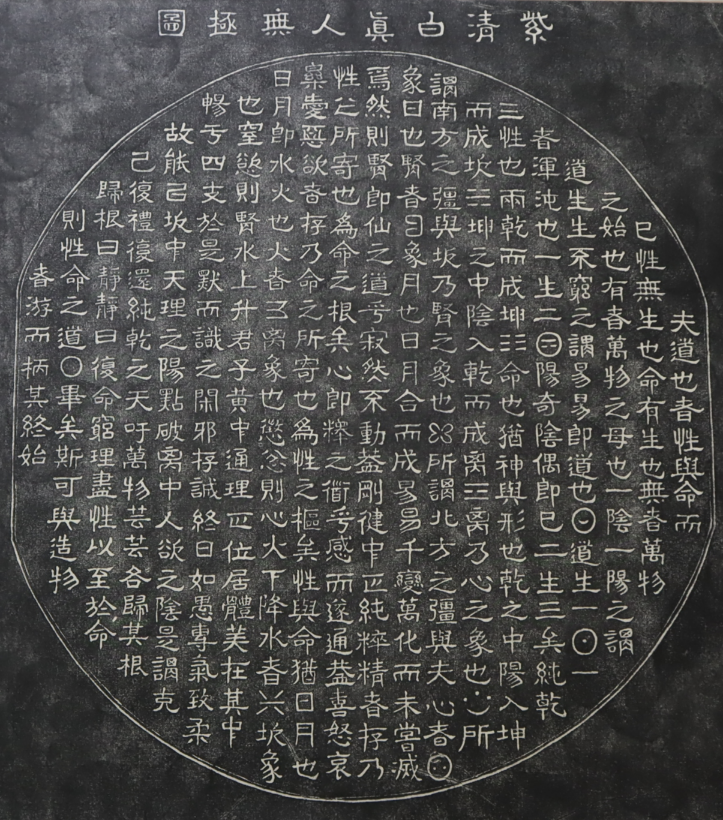 紫清白眞人無極圖
夫道也者性與命而
已性無生也命有生也無者萬物
之始也有者萬物之母也一陰一陽之謂
道生生不窮之謂易易即道也道生一☉一
者渾沌也一生二陽奇陰偶即已二生三矣純乾
☰性也兩乾而成坤☷命也猶神與形也乾之中陽入坤
而成坎☵坤之中陰入乾而成离☲离乃心之象也所
謂南方之彊與坎乃腎之象也所謂北方之彊與夫心者
象日也腎者象月也日月合而成易易千變萬化而未嘗滅
焉然則腎即仙之道乎寂然不動蓋剛健中正純粹精者存乃
性之所寄也為命之根矣心即之衢乎感而遂通蓋喜怒哀
樂愛惡欲者存乃命之所寄也為性之樞矣性與命猶日月也
日月即水火也火者离象也懲忿則心火下降水者坎象
也窒慾則腎水上升君子黃中通理正位居體美在其中
暢于四支於是默而識之閑邪存誠終日如愚專氣致柔
故能以坎中天理之陽點破离中人欲之陰是謂克
己復禮復還純乾之天吁萬物芸芸各歸其根
歸根曰靜靜曰復命窮理盡性以至於命
則性命之道〇畢矣斯可與造物
者游而柄其終始